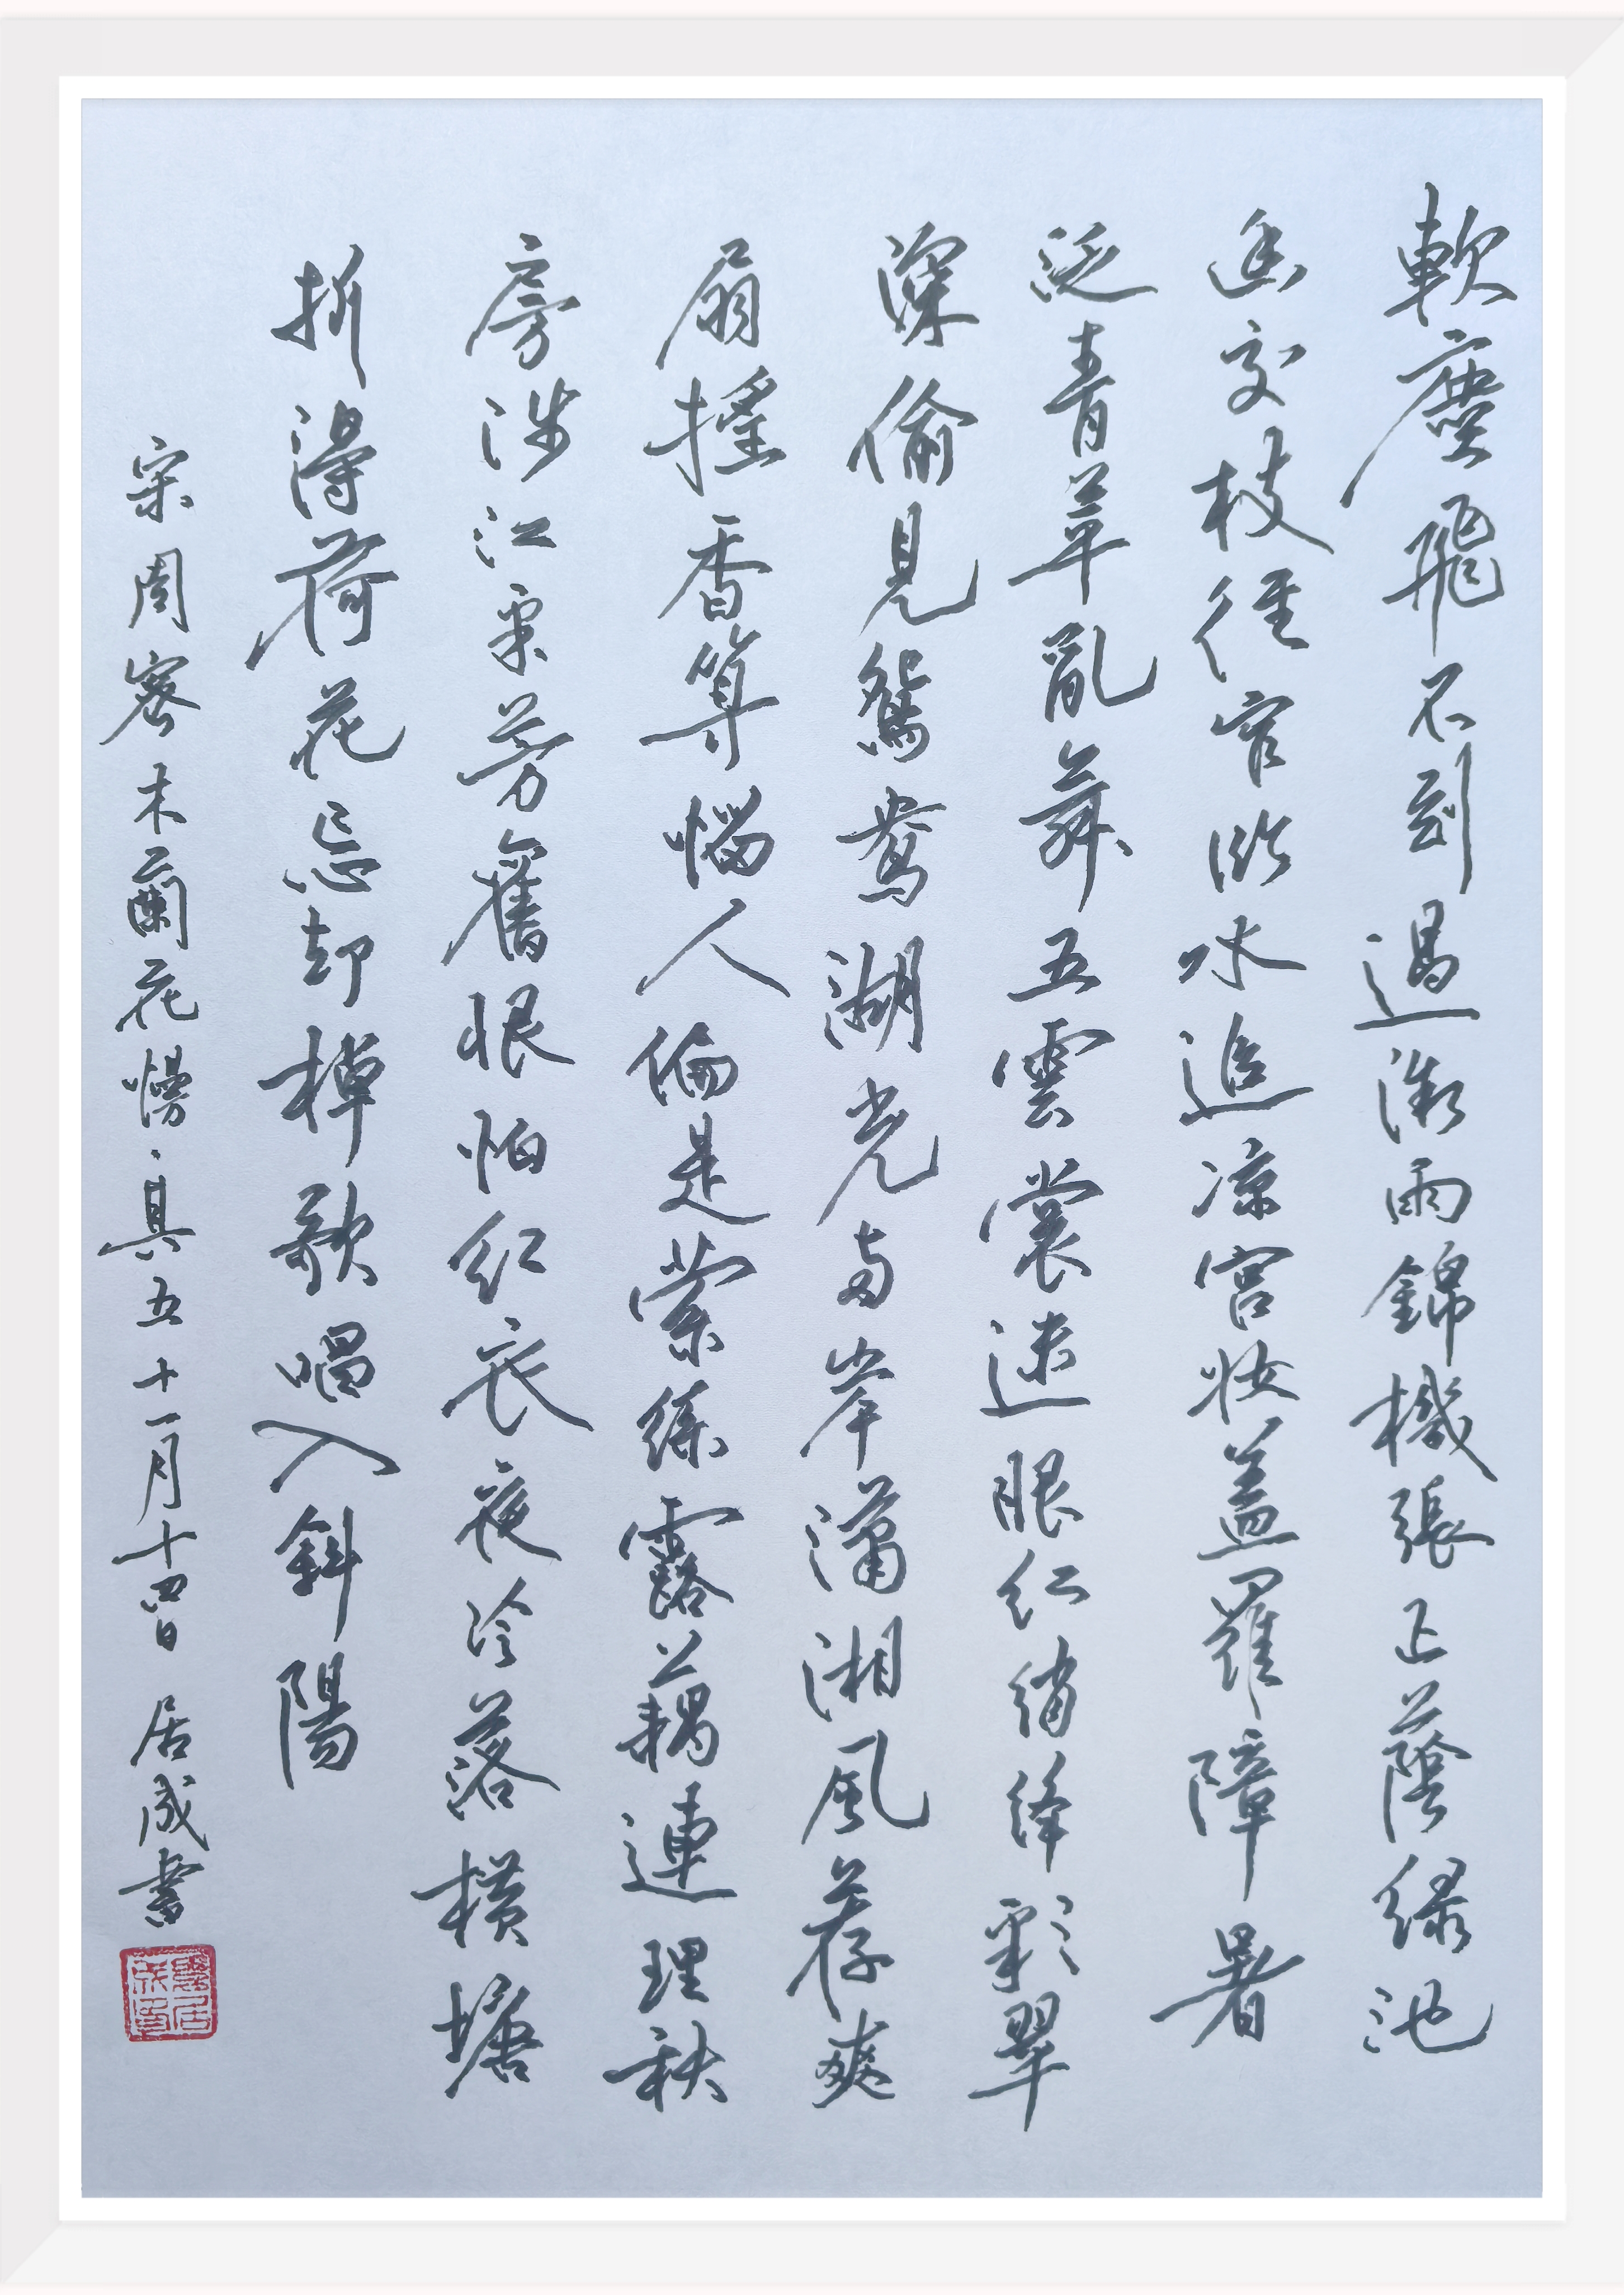 軟塵飛不到過微雨錦機張正蔭緑池
幽交枝徑窄臨水追凉宫妝蓋羅障暑
泛青苹亂舞五雲裳迷眼红綃絳彩翠
深偷見鴛鴦湖光兩岸瀟湘風荐爽
扇摇香算惱人偏是縈絲露藕連理秋
房涉江采芳舊恨怕红衣夜冷落横塘
折得荷花忘却棹歌唱入斜陽
宋周密木蘭花慢·其五十一月十四日 居成書